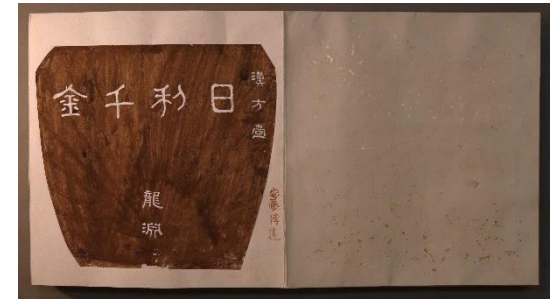 漢方壺
日利千金
龍淵